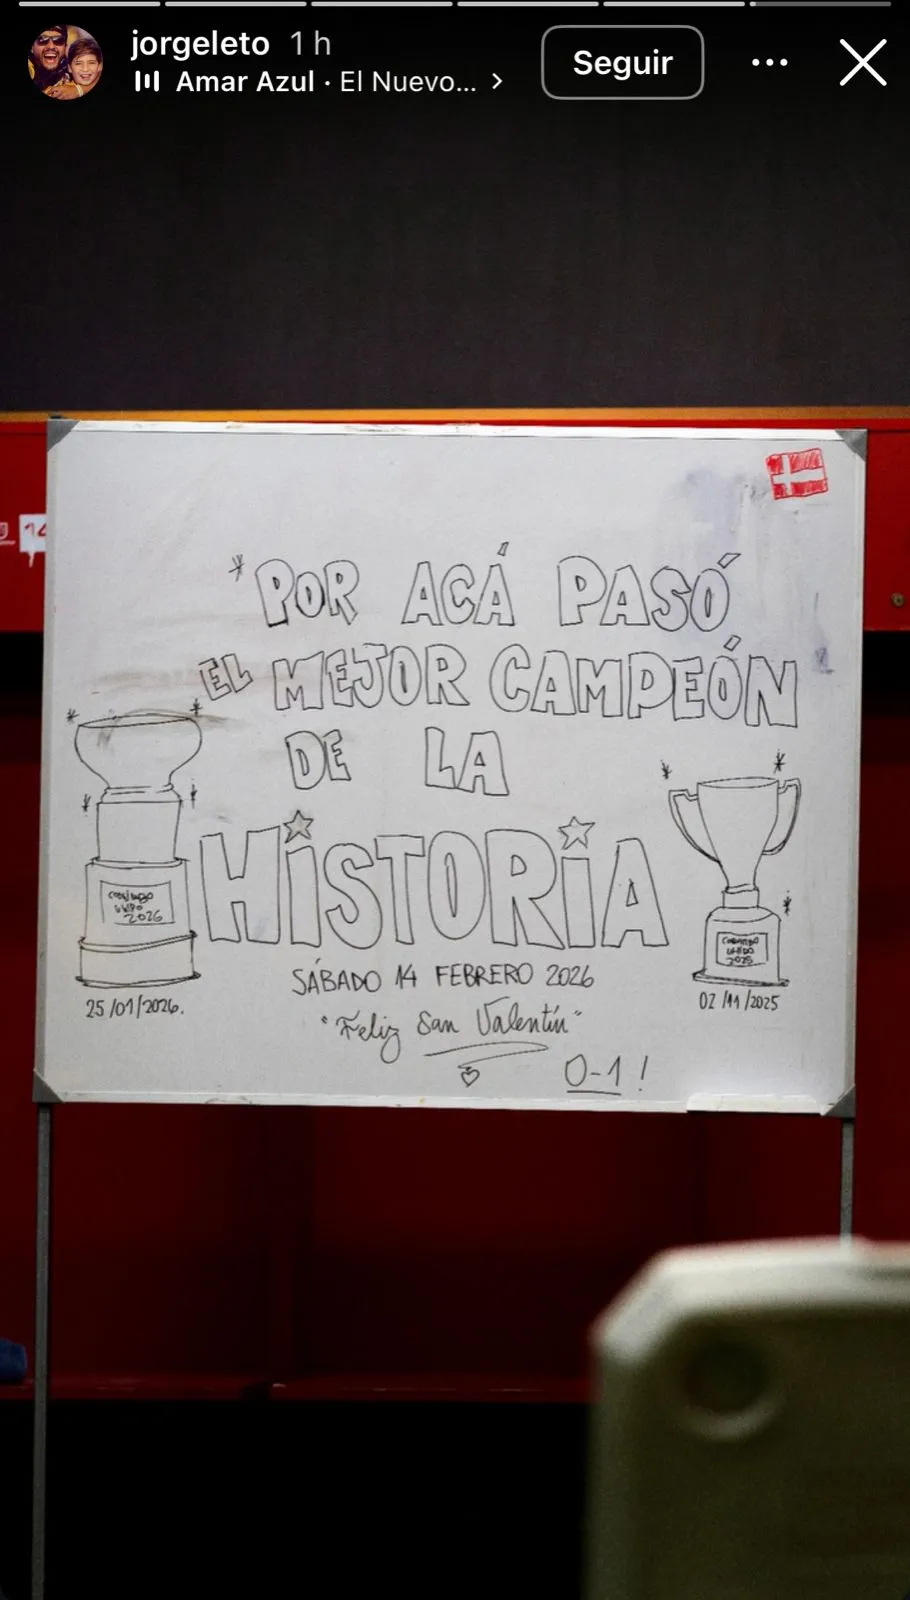 jorgeleto 1 h
Amar Azul · El Nuevo... >
Seguir
14
*POR ACÁ PASÓ
EL MEJOR CAMPEÓN
DE LA
HiSTORiA
COQUIMBO
UNIDO
2026
25/01/2026.
COQUIMBO
UNIDO
2025
02/11/2025
SÁBADO 14 FEBRERO 2026
"Feliz San Valentín"
0-1!